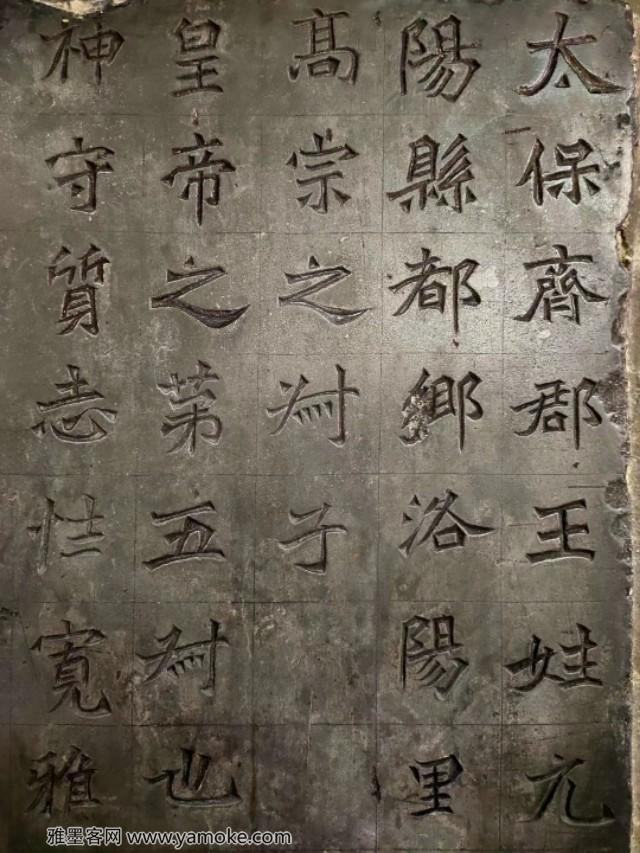 太保齊郡王姓元
陽縣都鄉洛陽里
髙宗之叔子
皇帝之苐五叔也
神守質志性寬雅
雅墨客网 www.yamoke.com